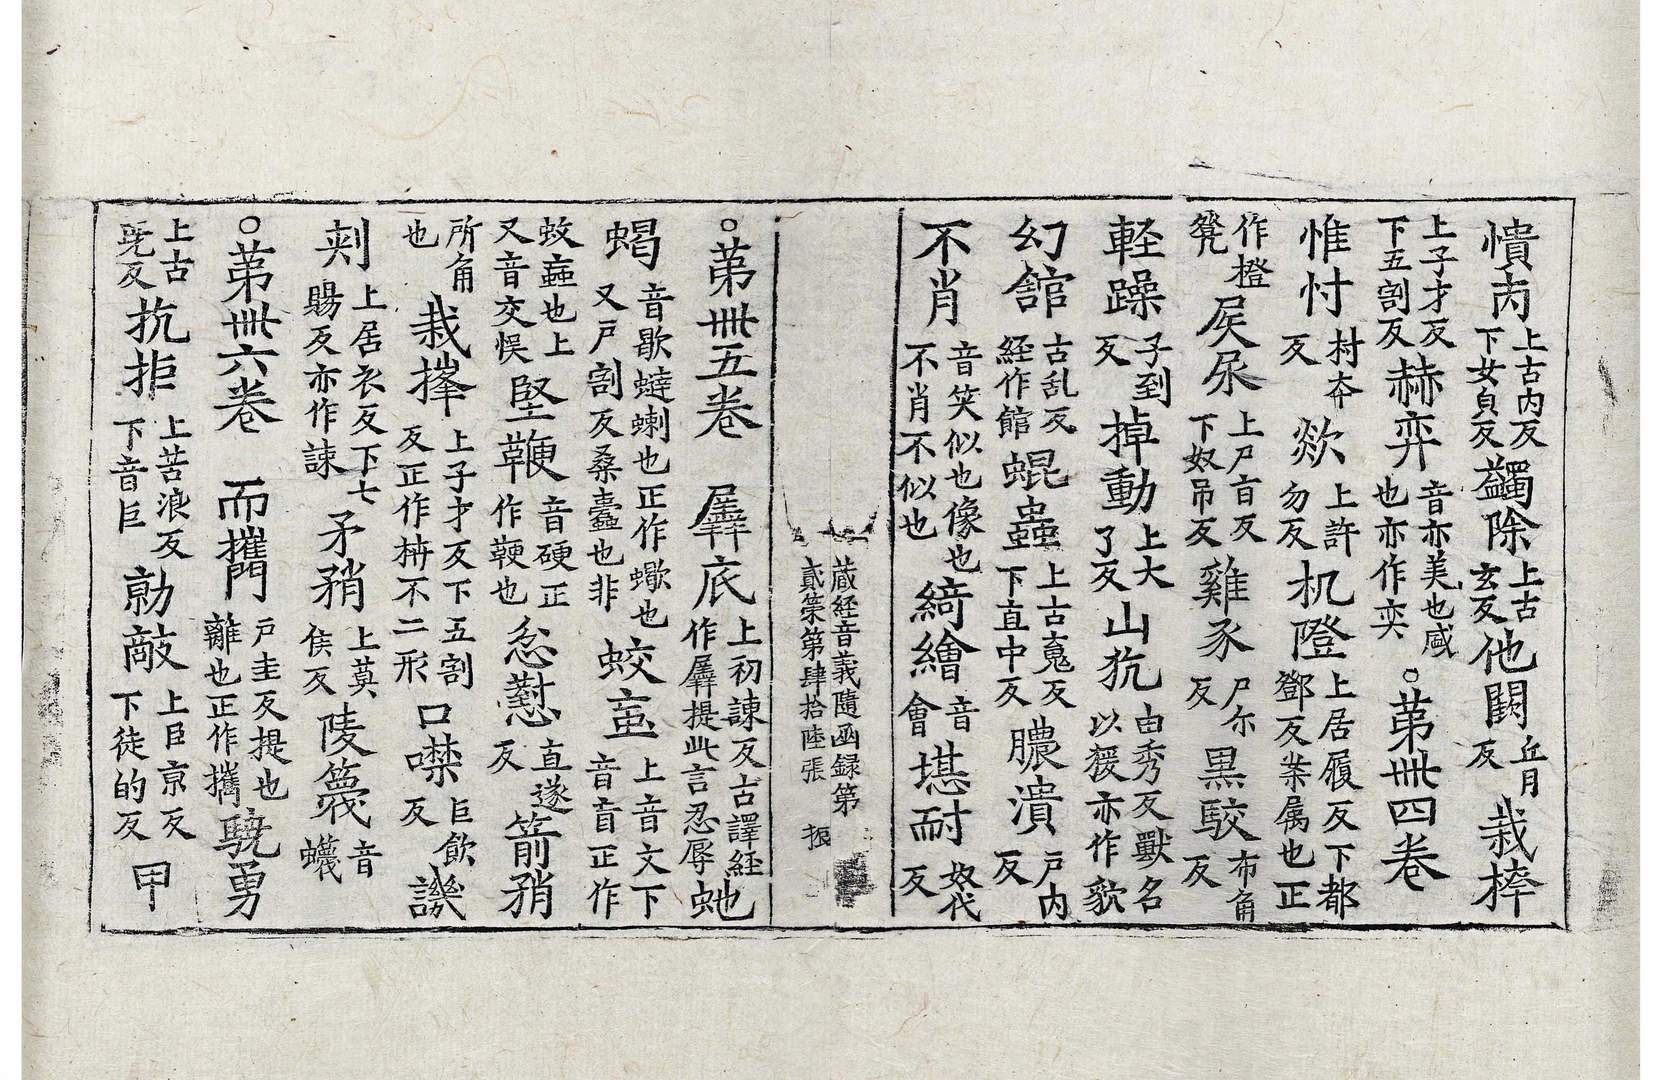 憒丙上古内反下女皃反蠲除上古玄反他闕丘月反栽榟
上子才反下五割反赫弈音亦美也咸也亦作奕○苐卌四卷
惟忖村夲反欻上許勿反机隥上居履反下都鄧反桒属也正
作橙凳㞋尿上尸旨反下奴吊反雞豕尸尓反黒駮布角反
軽躁子到反掉動上大了反山犺由秀反獸名以猨亦作貁
幻舘古乱反経作館蜫蟲上古䰟反下直中反膿潰戸内反
不肖音笑似也像也不肖不似也綺繪音會堪耐奴代反
藏経音義隨函録第貳筞第肆拾陸張 振
○苐卌五卷 羼底上初諫反古譯経作羼提此言忍辱虵
蝎音歇蟽蝲也正作蠍也又戸割反桑蠹也非蛟䖟上音文下音盲正作
蚊蝱也上又音交悮堅鞭音硬正作鞕也忿懟直遂反箭矟
所角也栽㨷上子才反下五割反正作枿不二形口噤巨飲反譏
刾上居衣反下七賜反亦作諫矛矟上莫侯反陵篾音蠛
○苐卌六卷 而㩦戸圭反提也離也正作攜驍勇
上古尭反抗拒上苦浪反下音巨勍敵上巨京反下徒的反甲